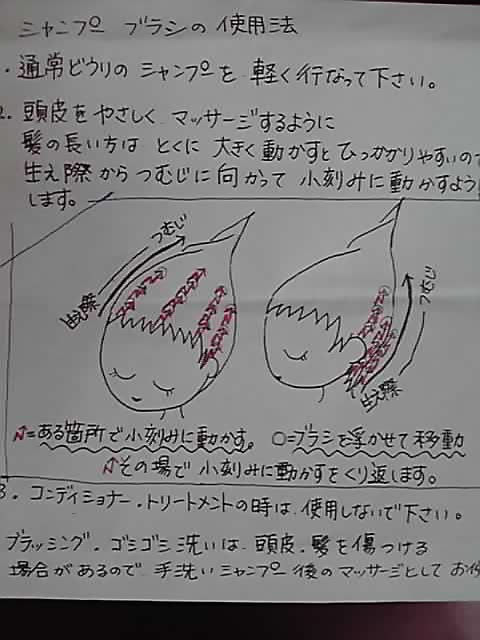 シャンプーブラシの使用法
・通常どうりのシャンプーを軽く行なって下さい。
2. 頭皮をやさしくマッサージするように
髪の長い方はとくに大きく動かすとひっかかりやすいので
生え際からつむじに向かって小刻みに動かすよう
します。
つむじ
生え際
つむじ
生え際
=ある箇所で小刻みに動かす。 ○=ブラシを浮かせて移動
その場で小刻みに動かすをくり返します。
3. コンディショナー・トリートメントの時は、使用しないで下さい。
ブラッシング・ゴシゴシ洗いは、頭皮・髪を傷つける
場合があるので、手洗いシャンプー後のマッサージとしてお使